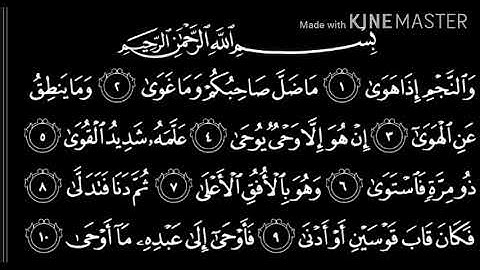 Made with KINEMASTER
بِسْمِ اللَّهِ الرَّحْمَٰنِ الرَّحِيمِ
وَالنَّجْمِ إِذَا هَوَىٰ ١ مَا ضَلَّ صَاحِبُكُمْ وَمَا غَوَىٰ ٢ وَمَا يَنطِقُ
عَنِ الْهَوَىٰ ٣ إِنْ هُوَ إِلَّا وَحْيٌ يُوحَىٰ ٤ عَلَّمَهُ شَدِيدُ الْقُوَىٰ ٥
ذُو مِرَّةٍ فَاسْتَوَىٰ ٦ وَهُوَ بِالْأُفُقِ الْأَعْلَىٰ ٧ ثُمَّ دَنَا فَتَدَلَّىٰ ٨
فَكَانَ قَابَ قَوْسَيْنِ أَوْ أَدْنَىٰ ٩ فَأَوْحَىٰ إِلَىٰ عَبْدِهِ مَا أَوْحَىٰ ١٠